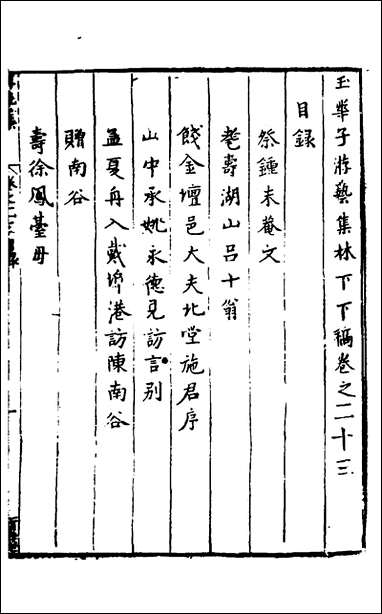 玉華子游藝集林下下稿卷之二十三
目録
祭鍾未菴文
耄壽湖山呂十翁
餞金壇邑大夫北堂施君序
山中承姚永德見訪言别
孟夏舟入戴埠港訪陳南谷
贈南谷
壽徐鳳臺母